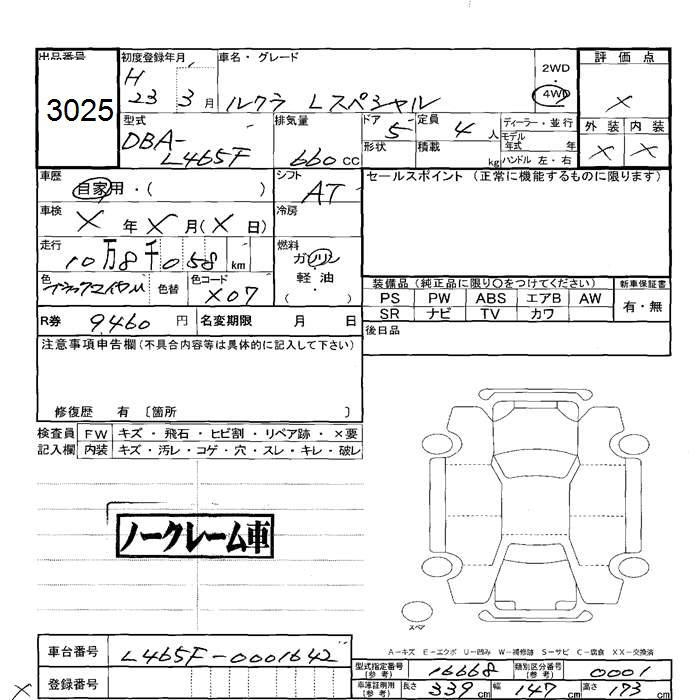 出品番号
3025
初度登録年月
H
23 3月
車名・グレード
ルクラ Lスペシャル
2WD
・
4WD
評価点
×
外装 内装
× ×
型式
DBA-
L465F
排気量
660 cc
ドア
5
形状
定員
4 人
積載
kg
ディーラー・並行
モデル
年式 年
ハンドル 左・右
車歴
自家用・( )
シフト
AT
セールスポイント (正常に機能するものに限ります)
車検
× 年 × 月(× 日)
冷房
走行
10万8千058 km
燃料
ガソリン
軽油
( ・ )
色
色替
色コード
X07
装備品 (純正品に限り〇をつけてください)
新車保証書
PS PW ABS エアB AW
SR ナビ TV カワ
有・無
R券 9,460 円
名変期限 月 日
後日品
注意事項申告欄(不具合内容等は具体的に記入して下さい)
修復歴 有 〔箇所 〕
検査員 FW キズ・飛石・ヒビ割・リペア跡・×要
記入欄 内装 キズ・汚レ・コゲ・穴・スレ・キレ・破レ
ノークレーム車
スペア
A-キズ E-エクボ U-凹み W-補修跡 S-サビ C-腐食 XX-交換済
車台番号 L465F-0001642
登録番号
型式指定番号
(参考)
16668
類別区分番号
(参考)
0001
車庫証明用
(参考)
長さ 339 cm 幅 147 cm 高さ 173 cm
×